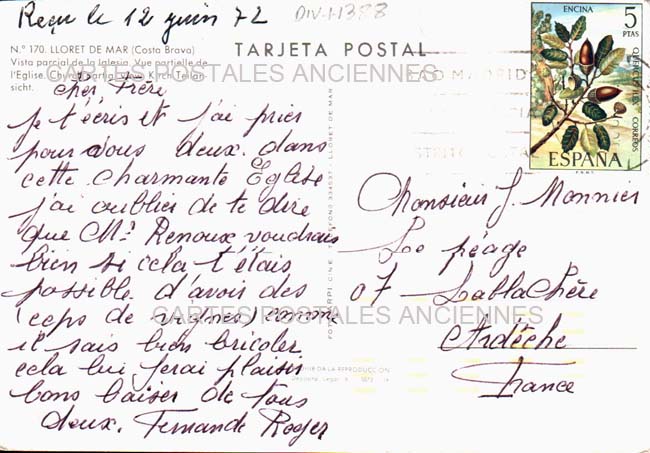 Reçu le 12 juin 72
DIV-1-1388
N.° 170. LLORET DE MAR (Costa Brava)
Vista parcial de la Iglesia. Vue partielle de
l'Eglise. Church partial view. Kirch Teilan-
sicht.
TARJETA POSTAL
CARTES POSTALES ANCIENNES
MADRID
ENCINA
5
PTAS
CORREOS
ESPAÑA
F.N.M.T.
cher Frère
je t'écris et j'ai prier
pour vous deux. dans
cette Charmante Eglise
j'ai oublier de te dire
que Mr Renoux voudrais
bien si cela t'étais
possible d'avoir des
(ceps de vignes) comme
il sais bien bricoler.
cela lui ferai plaisir
bons baiser de tous
deux. Fernande Roger
LLORET DE MAR
Monsieur J. Monnier
Le péage
07 - Lablachère
Ardèche
France
CARTES POSTALES ANCIENNES
LA REPRODUCCION